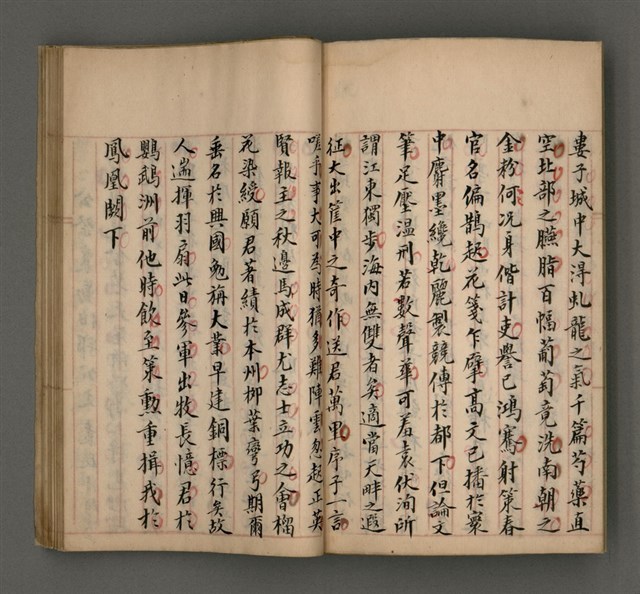 婁子城中大淂虬龍之氣千篇芍藥直
空北部之臙脂百幅葡萄竟洗南朝之
金粉何况身偕計吏譽已鴻騫射策春
官名偏鵲起花箋乍擘髙文已播於寰
中麝墨纔乾麗製競傳於都下但論文
筆足壓温邢若數聲華可羞袁伏洵所
謂江東獨步海内無雙者矣適當天畔之遐
征大出篋中之竒作送君萬里序子一言
嗟乎事大可為時猶多難陣雲忽起正英
賢報主之秋邊馬成群尤志士立功之會榴
花染綬願君著績於本州栁葉彎弓期爾
垂名於興國勉旃大業早建銅標行矣故
人遄揮羽扇此日叅軍出牧長憶君於
鸚鵡洲前他時飲至策勲重揖我於
鳳凰闕下